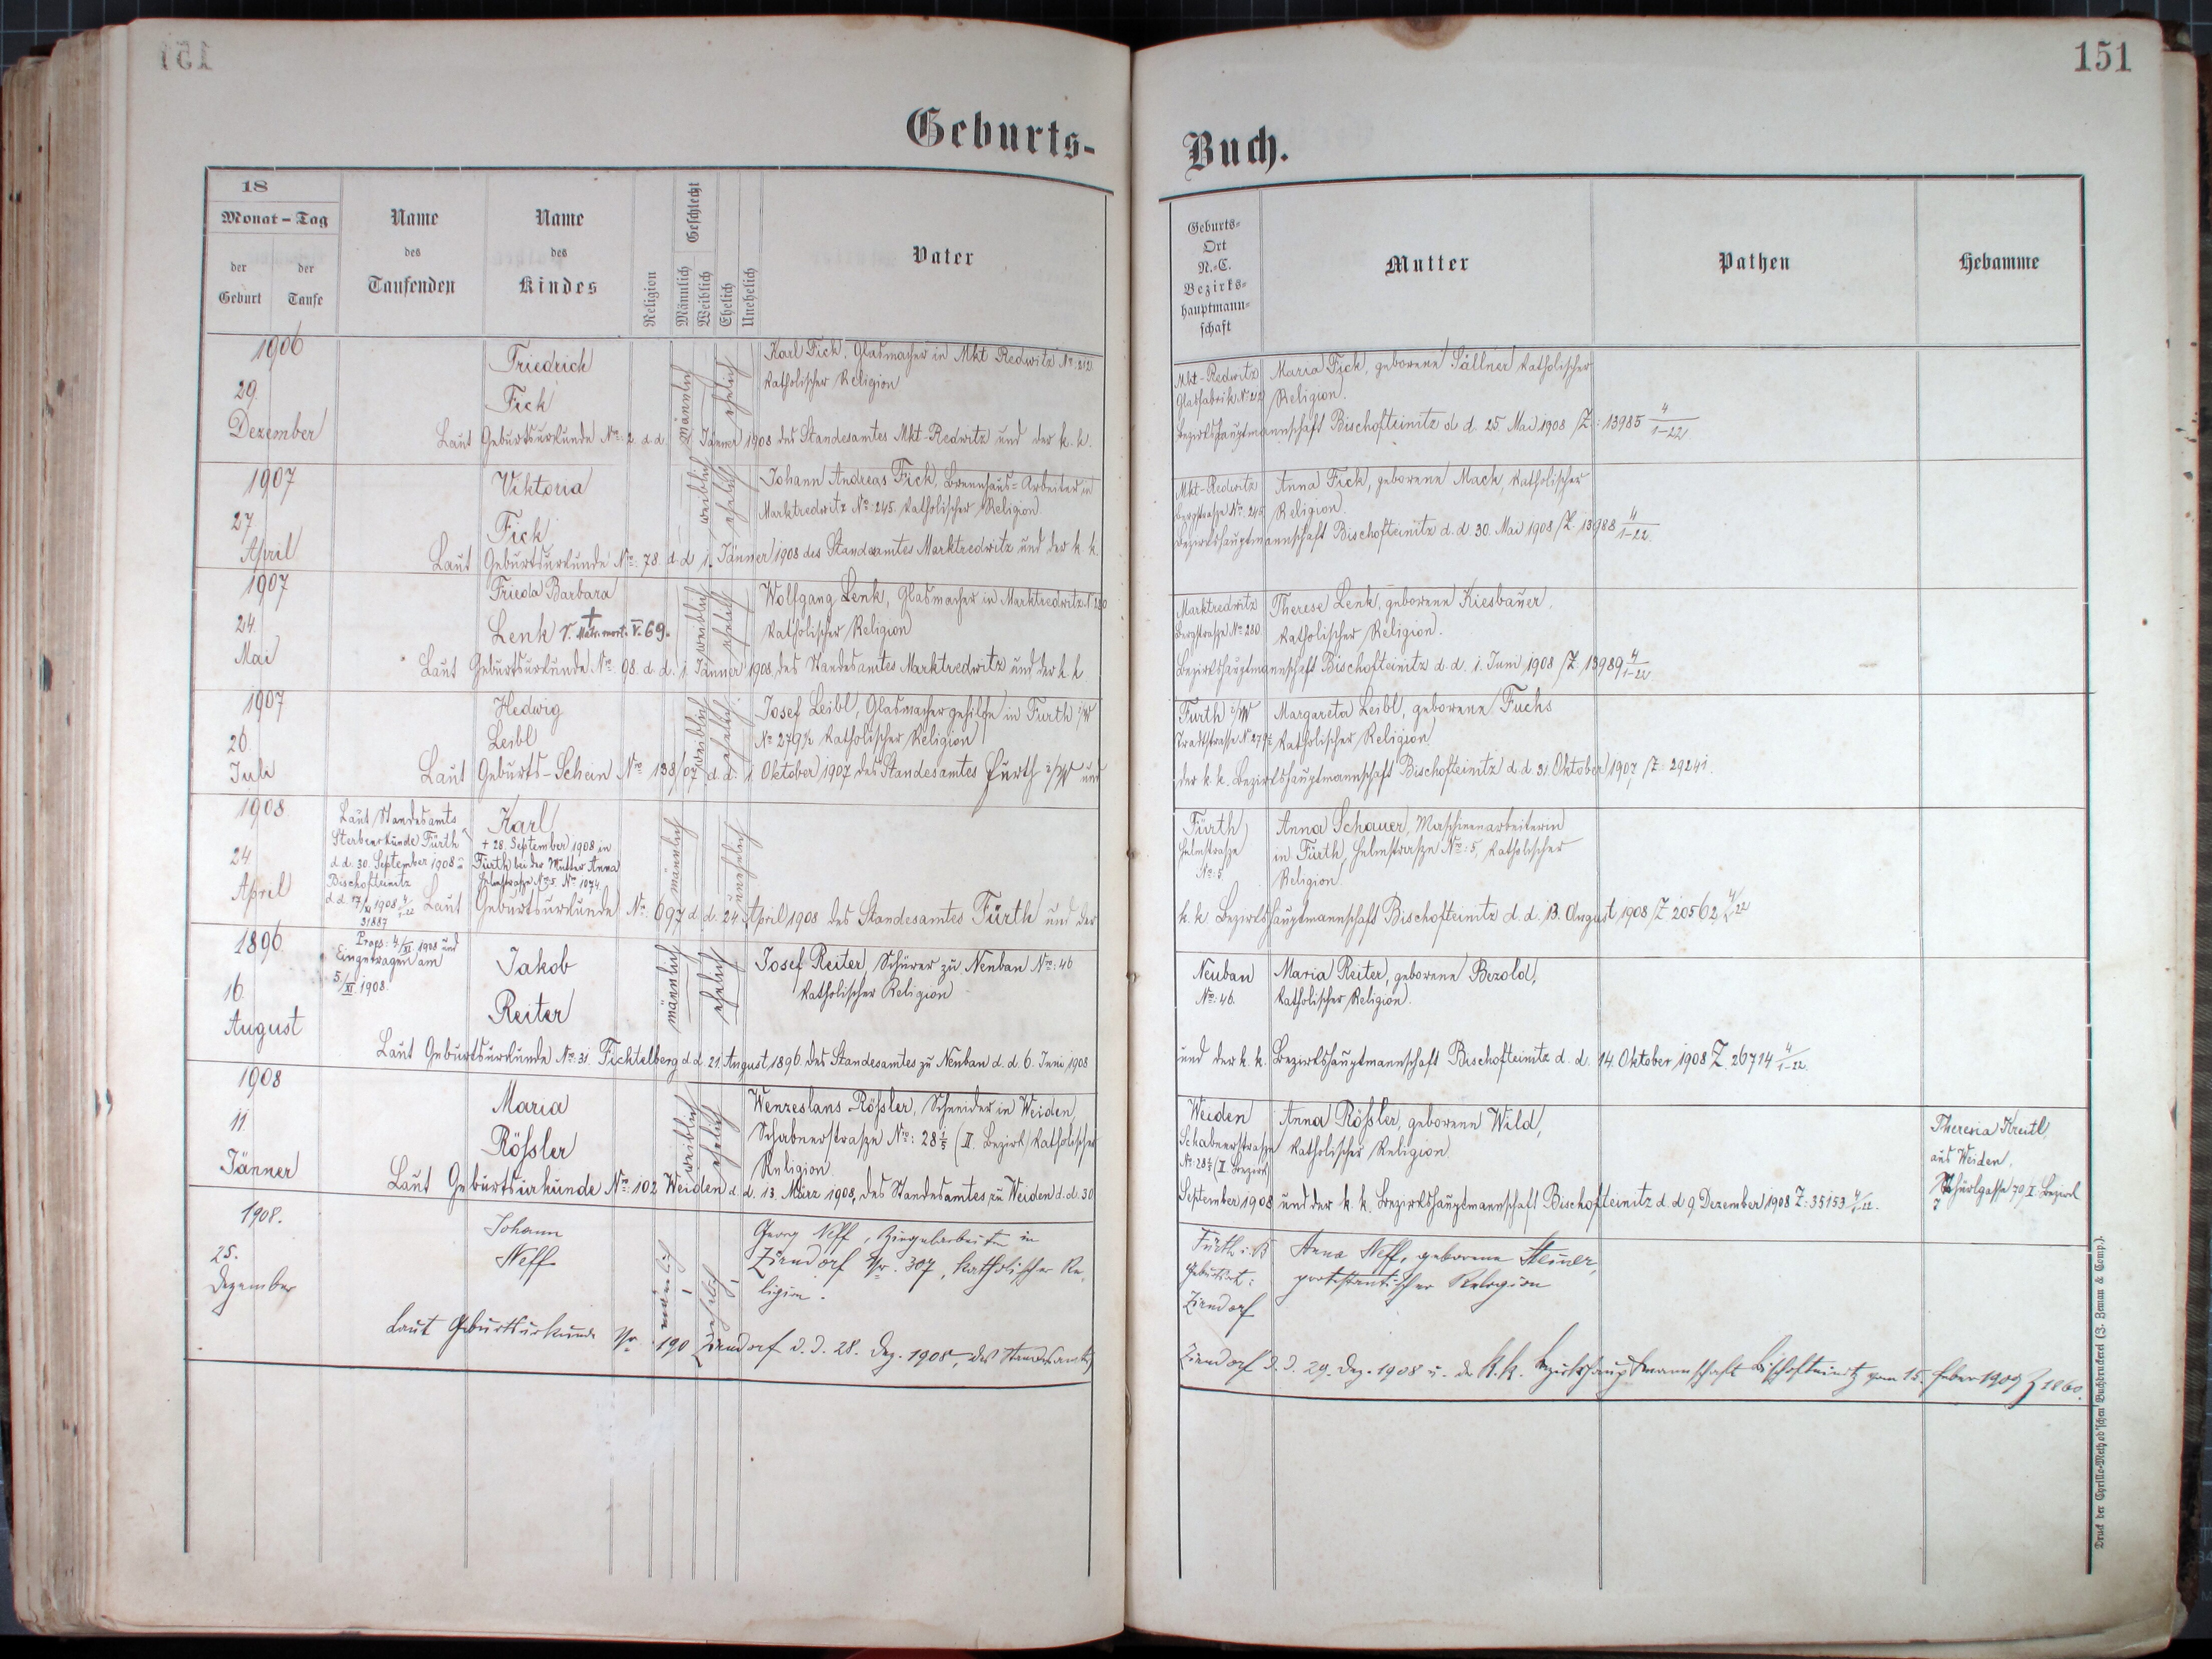 151
151
Geburts-
Buch.
18
Monat - Tag
der Geburt
der Taufe
Name des Taufenden
Name des Kindes
Religion
Geschlecht
Männlich
Weiblich
Ehelich
Unehelich
Vater
Geburts-
Ort
N.-C.
Bezirks-
hauptmann-
schaft
Mutter
Pathen
Hebamme
1906
29.
Dezember
Friedrich
Fick
männlich
ehelich
Karl Fick, Glasmacher in Mkt Redwitz No: 212.
katholischer Religion
Laut Geburtsurkunde No: 2 d. d. Jänner 1908 des Standesamtes Mkt-Redwitz und der k. k.
Mkt-Redwitz
Glasfabrik No: 212
Maria Fick, geborene Sällner katholischer
Religion.
Bezirkshauptmannschaft Bischofteinitz d. d. 25 Mai 1908 /Z.: 13985 4/1-22
1907
27
April
Viktoria
Fick
weiblich
ehelich
Johann Andreas Fick, Brennhaus-Arbeiter in
Marktredwitz No: 245. katholischer Religion
Laut Geburtsurkunde No: 78. d. d 1. Jänner 1908 des Standesamtes Marktredwitz und der k. k.
Mkt-Redwitz
Bergstraße No: 245
Anna Fick, geborene Mack, katholischer
Religion.
Bezirkshauptmannschaft Bischofteinitz d. d. 30. Mai 1908 /Z. 13988 4/1-22.
1907
24.
Mai
Frieda Barbara
Lenk + V. Matr. mort. V. 69.
weiblich
ehelich
Wolfgang Lenk, Glasmacher in Marktredwitz No 280
katholischer Religion
Laut Geburtsurkunde No: 98. d. d. 1. Jänner 1908, des Standesamtes Marktredwitz und der k. k
Marktredwitz
Bergstraße No: 280
Therese Lenk, geborene Kiesbauer.
katholischer Religion.
Bezirkshauptmannschaft Bischofteinitz d. d. 1. Juni 1908 /Z: 13989 4/1-22
1907
26.
Juli
Hedwig
Leibl
weiblich
ehelich
Josef Leibl, Glasmachergehilfe in Furth i/W
No 279½ katholischer Religion
Laut Geburts-Schein No: 138/07 d. d. 1. Oktober 1907 des Standesamtes Furth i/W und
Furth i/W
Stadtstrasse No 279½
Margareta Leibl, geborene Fuchs
katholischer Religion.
der k. k. Bezirkshauptmannschaft Bischofteinitz d. d 31 Oktober 1907 /Z: 29241.
1908
24
April
Laut Standesamts
Sterbeurkunde Fürth
d. d. 30. September 1908 u
Bischofteinitz
d. d. 17/XI 1908 4/1-22
31887
Karl
+ 28. September 1908 in
Fürth bei der Mutter Anna
Helmstraße No: 5. No 1074.
männlich
unehelich
Laut Geburtsurkunde No: 697 d. d. 24. April 1908 des Standesamtes Fürth und der
Fürth
Helmstraße
No: 5
Anna Schauer, Maschinenarbeiterin
in Fürth, Helmstraße No: 5, katholischer
Religion.
k. k. Bezirkshauptmannschaft Bischofteinitz d. d. 13. August 1908 /Z 20562 4/22
1896
16.
August
Props: 4/XI. 1908 und
Eingetragen am
5/XI. 1908.
Jakob
Reiter
männlich
ehelich
Josef Reiter, Schürer zu Neubau No: 46
katholischer Religion
Laut Geburtsurkunde No: 31 Fichtelberg d. d. 21. August 1896. des Standesamtes zu Neubau d. d. 6. Juni 1908
Neubau
No: 46.
Maria Reiter, geborene Bezold,
katholischer Religion.
und der k. k. Bezirkshauptmannschaft Bischofteinitz d. d. 14. Oktober 1908 Z. 26714 4/1-22.
1908
11
Jänner
Maria
Rößler
weiblich
ehelich
Wenzeslaus Rößler, Schneider in Weiden,
Schabnerstraße No: 28 1/5 (II. Bezirk) katholischer
Religion.
Laut Geburtsurkunde No: 102 Weiden d. d. 13. März 1908, des Standesamtes zu Weiden d. d. 30
Weiden
Schabnerstraße
No: 28 1/5 (I. Bezirk
Anna Rößler, geborene Wild,
katholischer Religion.
Theresia Kreitl,
aus Weiden,
Schürlgasse 70/I. Bezirk
September 1908 und der k. k. Bezirkshauptmannschaft Bischofteinitz d. d. 9. Dezember 1908 Z: 35153 4/1-22.
1908.
25.
Dezember
Johann
Neff
männlich
ehelich
Georg Neff, Ziegelarbeiter in
Zirndorf Nr. 307, katholischer Re-
ligion.
Laut Geburtsurkunde Nr. 190 Zirndorf d. d. 28. Dez. 1908, des Standesamts
Fürth i. B
Geburtsort:
Zirndorf
Anna Neff, geborene Steiner,
protestantischer Religion
Zirndorf d. d. 29. Dez. 1908 u. der k. k. Bezirkshauptmannschaft Bischofteinitz vom 15. Feber 1909 Z 1860.
Druck der Cyrillo-Method'schen Buchdruckerei (J. Zeman & Comp.).